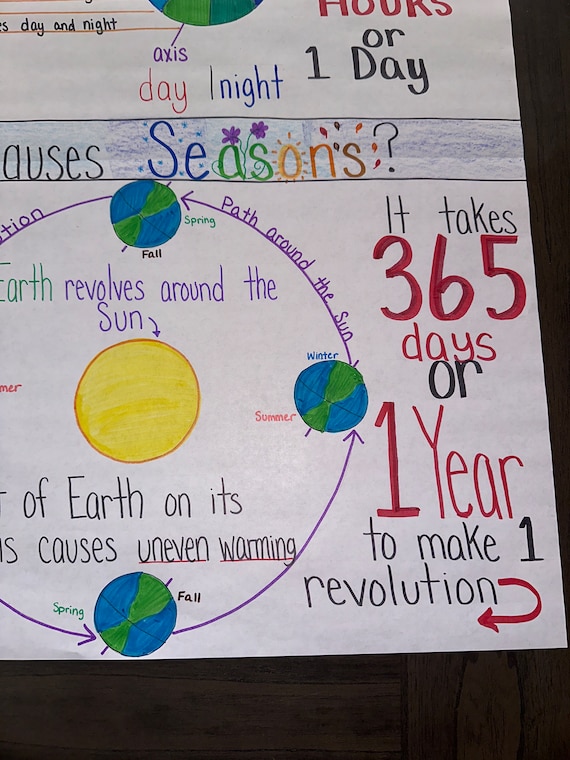 day and night
axis
day | night
HOURS
or
1 Day
Seasons?
Path around the Sun
Spring
Fall
Earth revolves around the
Sun
Winter
Summer
of Earth on its
causes uneven warming
Spring
Fall
It takes
365
days
or
1 Year
to make 1
revolution